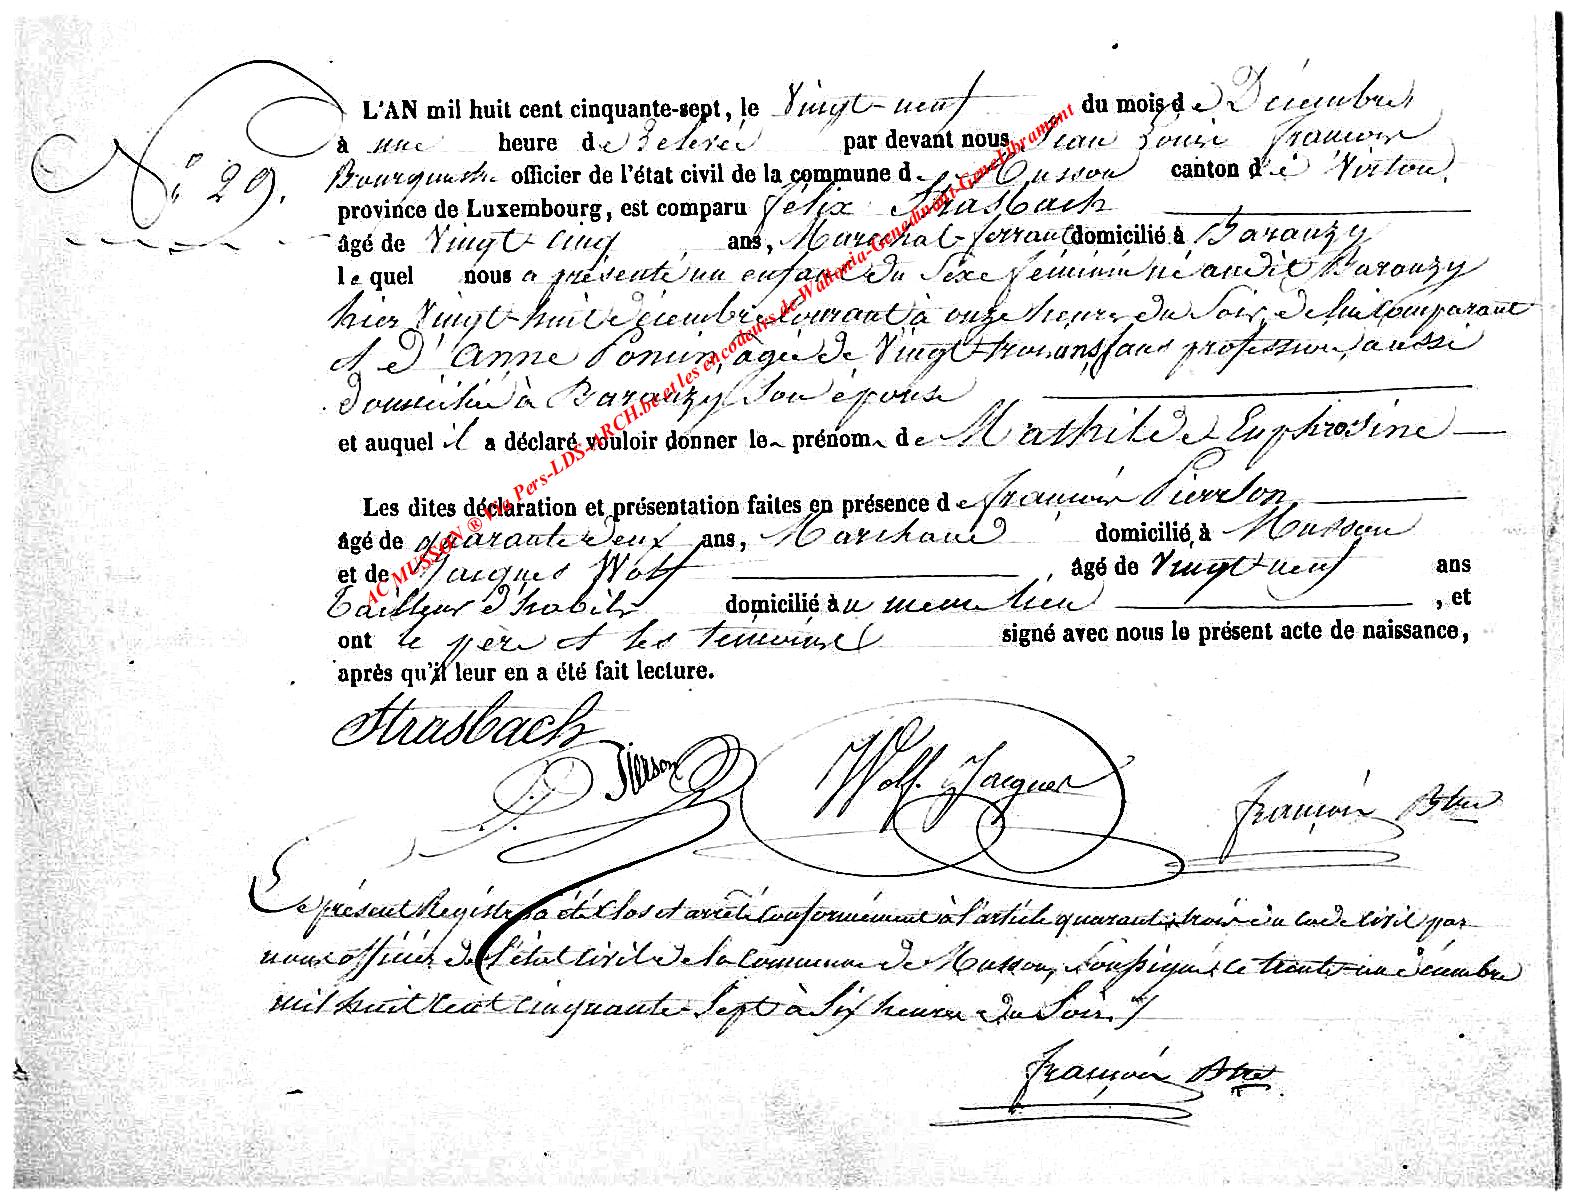 N° 29.
L'AN mil huit cent cinquante-sept, le Vingt-neuf du mois de Décembre
à une heure de Relevée par devant nous Jean Louis françois
Bourgmestre officier de l'état civil de la commune de Musson canton de Virton,
province de Luxembourg, est comparu félix Strasbach
âgé de Vingt-cinq ans, Marechal-ferrant domicilié à Baranzy
lequel nous a présenté un enfant du Sexe féminin né audit Baranzy
hier Vingt-huit décembre Courant à onze heures du Soir, de lui Comparant
et d'Anne Ponin, agée de Vingt-trois ans, sans profession, aussi
domiciliée à Baranzy Son épouse
et auquel il a déclaré vouloir donner le prénom de Mathilde Euphrosine
Les dites déclaration et présentation faites en présence de françois Pierson
âgé de quarante deux ans, Marchand domicilié à Musson
et de Jacques Wolf âgé de Vingt-neuf ans
tailleur d'habits domicilié au meme lieu, et
ont le père et les témoins signé avec nous le présent acte de naissance,
après qu'il leur en a été fait lecture.
Strasbach
Pierson
Wolf Jacques
françois Btre
Le présent Registre a été Clos et arrêté Conformément à l'article quarante-trois du code Civil par
nous officier de l'état Civil de la Commune de Musson, Soussigné, ce trente-un décembre
mil huit Cent Cinquante-Sept à Six heures du Soir.
françois Btre
AC MUSSON ® Via Pers-LDS-ARCH.be et les encodeurs de Wallonia-Genedinant-GeneLibramont